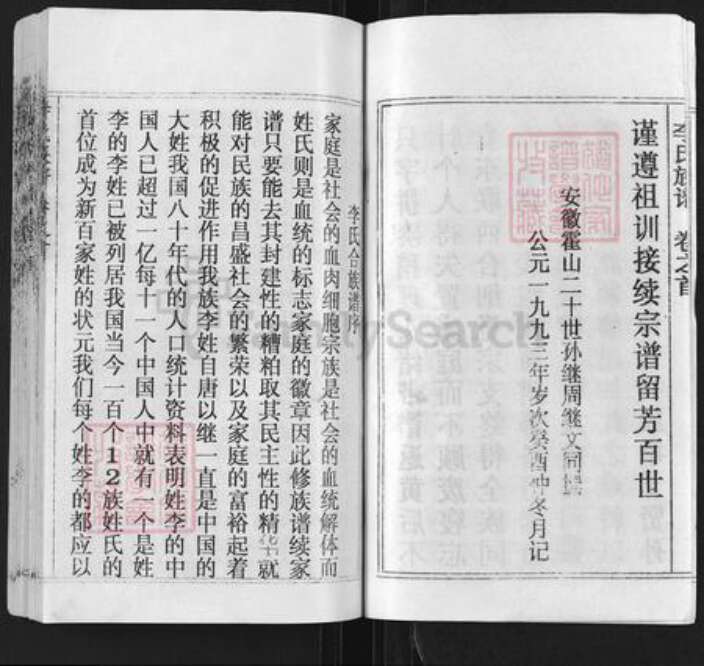 李氏族谱 卷之首
谨遵祖训接续宗谱留芳百世
安徽霍山二十世孙继周继文同撰
公元一九九三年岁次癸酉仲冬月记
李氏合族谱序
家庭是社会的血肉细胞宗族是社会的血统解体而
姓氏则是血统的标志家庭的徽章因此修族谱续家
谱只要能去其封建性的糟粕取其民主性的精华就
能对民族的昌盛社会的繁荣以及家庭的富裕起着
积极的促进作用我族李姓自唐以继一直是中国的
大姓我国八十年代的人口统计资料表明姓李的中
国人已超过一亿每十一个中国人中就有一个是姓
李的李姓已被列居我国当今一百个12族姓氏的
首位成为新百家姓的状元我们每个姓李的都应以
FamilySearch